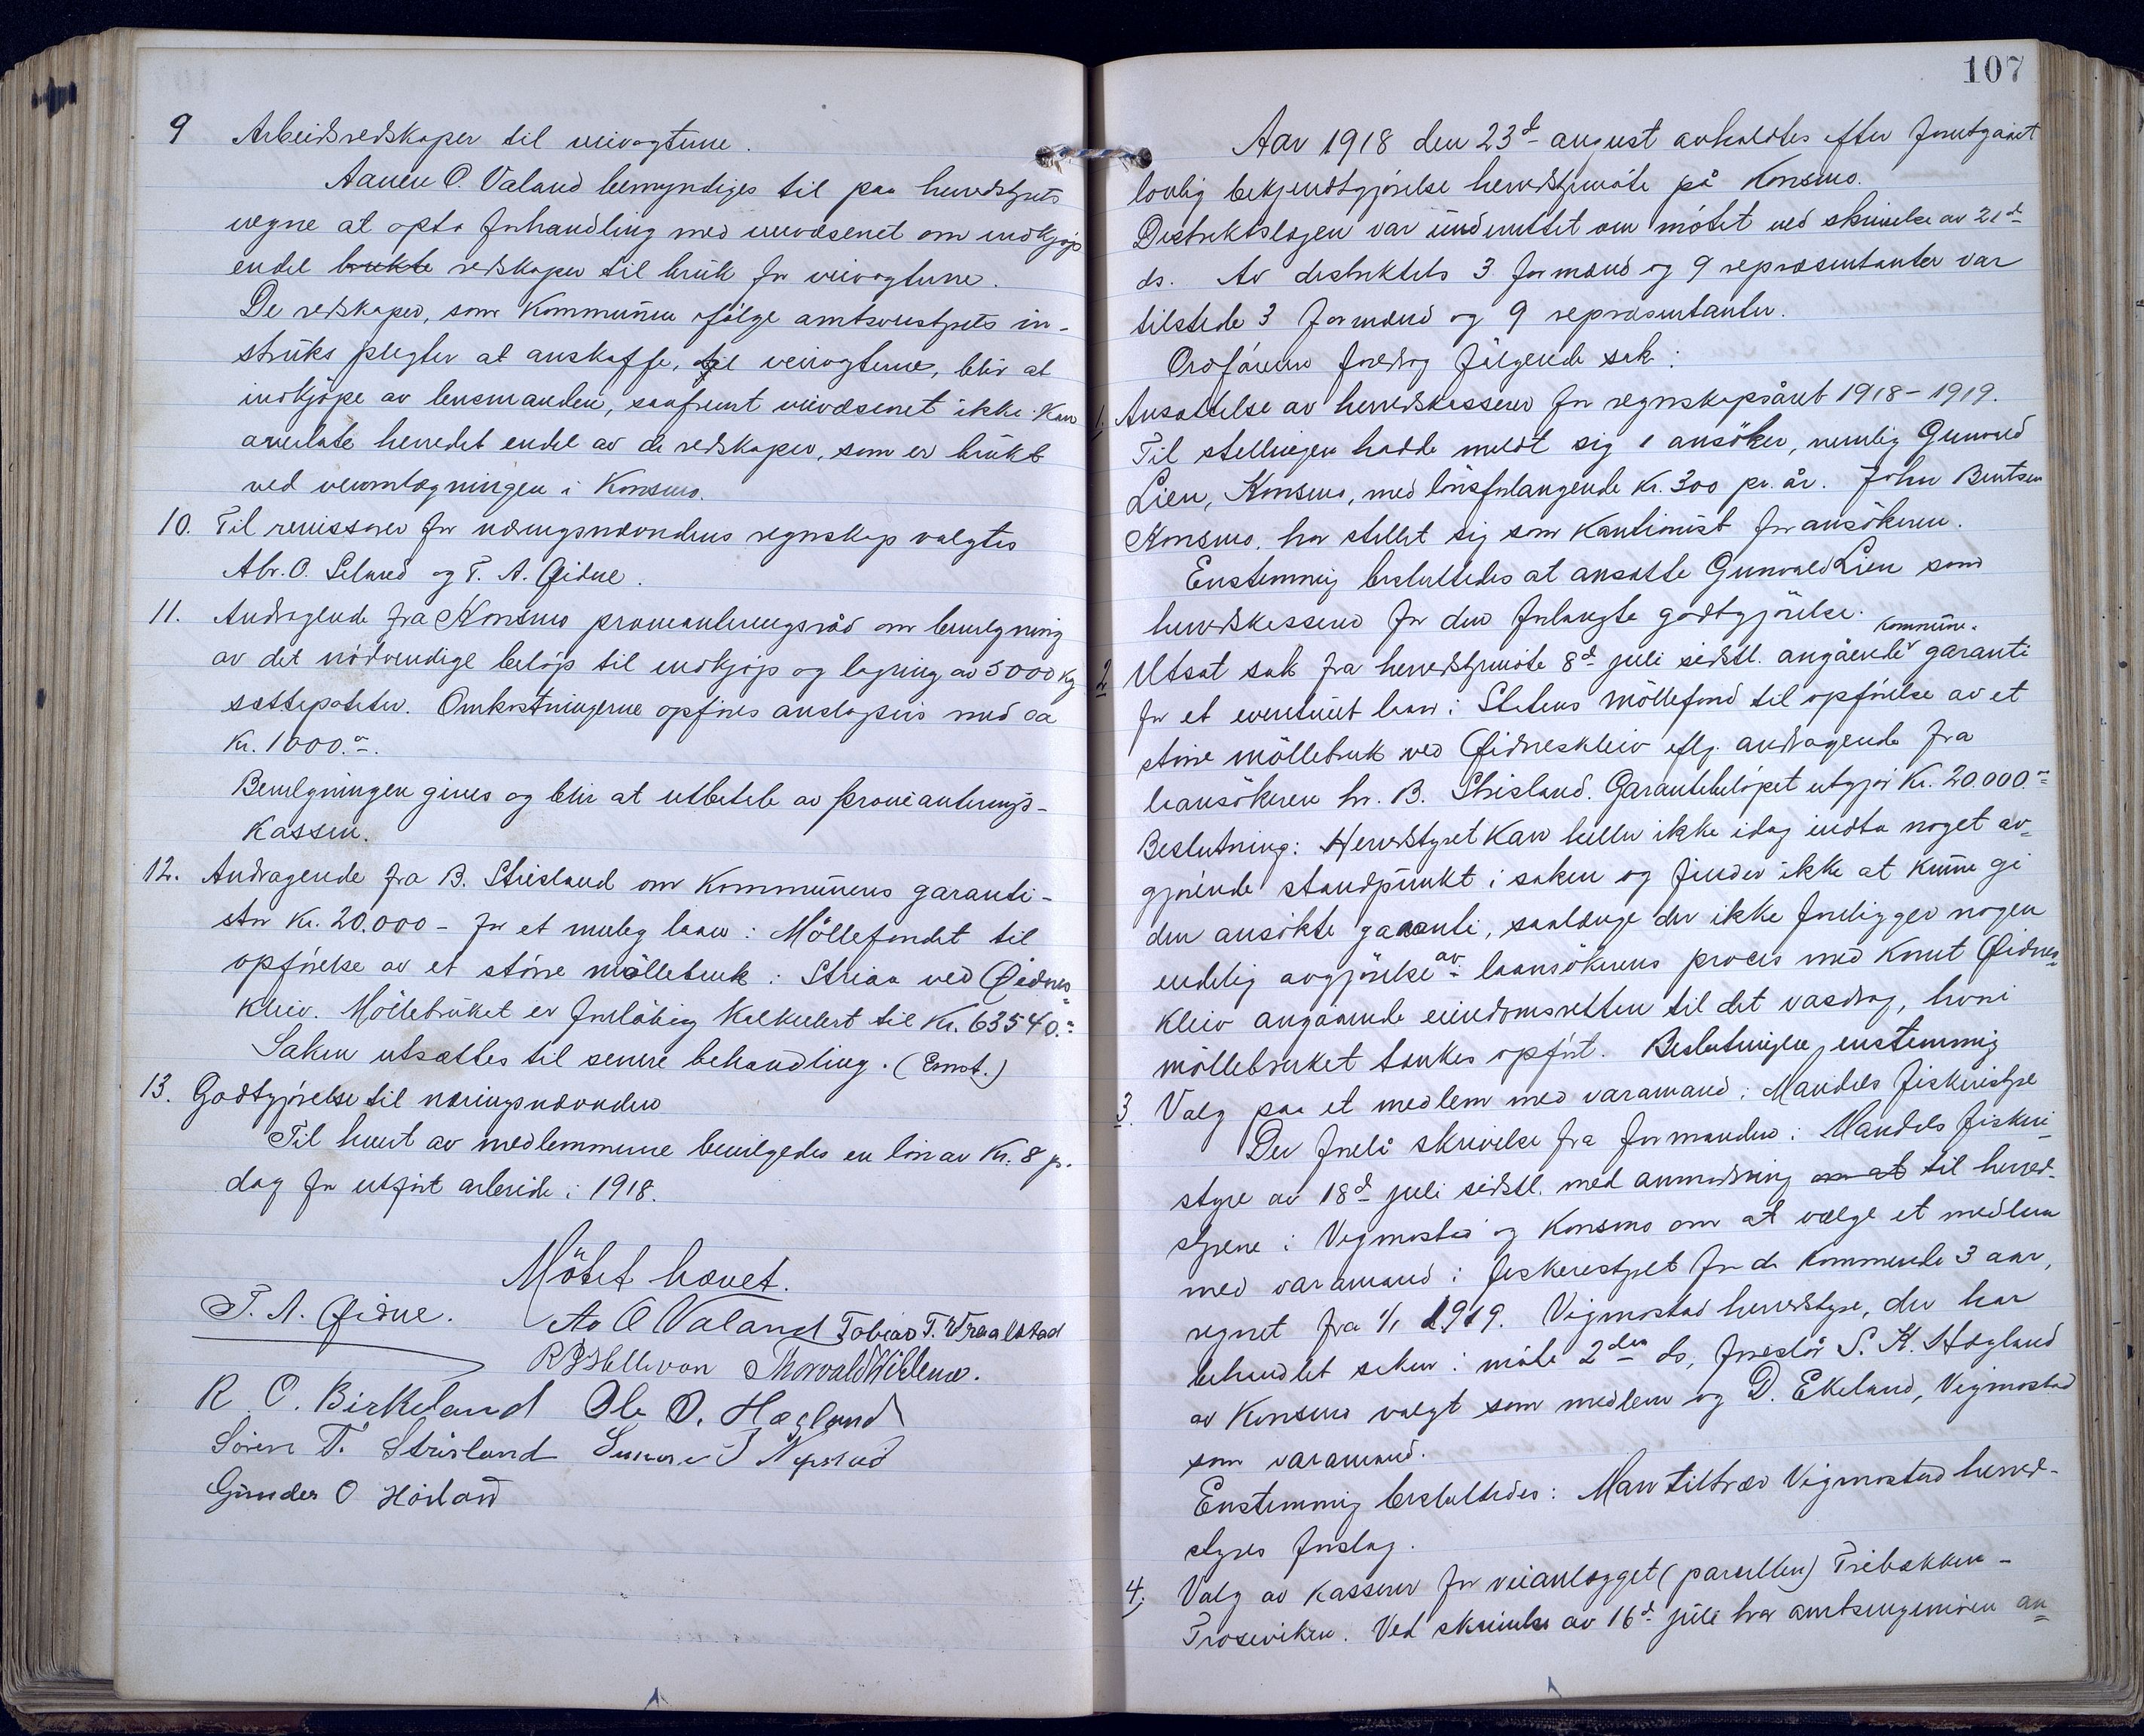 9 Arbeidsredskaper til veivogterne.
Aanen O. Valand bemyndiges til paa herredstyrets
vegne at opta forhandling med veivæsenet om indkjøp
endel brukte redskaper til bruk for veivogterne.
De redskaper, som kommunen ifølge amtsveistyrets in-
struks plegter at anskaffe, til veivogterne, blir at
indkjøpe av lensmanden, saafremt veivæsenet ikke kan
overlate herredet endel av de redskaper, som er brukt
ved veiomlægningen i Konsmo.
10. Til revisorer for næringsnævndens regnskap valgtes
Abr. O. Seland og T. A. Øidne.
11. Andragende fra Konsmo provianteringsråd om bevilgning
av det nödvendige belöp til indkjöp og lagring av 5000 kg
settepoteter. Omkostningerne opföres anslagsvis med ca
Kr. 1000.-
Bevilgningen gives og blir at utbetale av provianterings-
kassen.
12. Andragende fra B. Strisland om kommunens garanti-
stor Kr. 20.000 - for et mulig laan i Möllefondet til
opförelse av et större möllebruk i Striaa ved Øidnes-
kleiv. Möllebruket er foreløbig kalkulert til Kr. 63540.-
Saken utsættes til senere behandling. (Enst.)
13. Godtgjörelse til næringsnævnden
Til hvert av medlemmerne bevilgedes en lön av Kr. 8 pr.
dag for utfört arbeide i 1918.
Mötet hævet.
T. A. Øidne. Aa O Valand Tobias T. Vraalstad
R J Hellevan Thorvald
R. O. Birkeland Ole O. Hægland
Sören T. Strisland
Gunder O Höiland
107
Aar 1918 den 23d august avholdtes efter forutgaaet
lovlig bekjendtgjørelse herredstyremöte på Konsmo.
Distriktslægen var underrettet om mötet ved skrivelse av 21de
ds. Av distriktets 3 formænd og 9 repræsentanter var
tilstede 3 formænd og 9 repræsentanter.
Ordföreren foredrog fölgende sak:
1. Ansættelse av herredskasserer for regnskapsåret 1918-1919.
Til stellingen hadde meldt sig 1 ansöker, nemlig Gunvald
Lien, Konsmo, med lönsforlangende Kr. 300 pr. år. John Bentsen
Konsmo, har stellet sig som kautionist for ansökeren.
Enstemmig besluttedes at ansætte Gunvald Lien som
herredskasserer for den forlangte godtgjörelse.
kommune-
2 Utsat sak fra herredstyremöte 8d juli sidstl. angående garanti
for et eventuelt laan i Statens Möllefond til opförelse av et
större möllebruk ved Øidneskleiv iflg. andragende fra
laansökeren hr. B. Strisland. Garantibelöpet utgjör Kr. 20.000.-
Beslutning: Herredstyret kan heller ikke idag indta noget av-
gjörende standpunkt i saken og finder ikke at kunne gi
den ansökte garanti, saalænge der ikke foreligger nogen
endelig avgjörelse av laansökerens proces med Knut Øidnes-
kleiv angaaende eiendomsretten til det vasdrag, hvori
möllebruket tænkes opfört. Beslutningen enstemmig
3. Valg paa et medlem med varamand i Mandals fiskeristyre
Der forelå skrivelse fra formanden i Mandals fiskeri-
styre av 18d juli sidstl. med anmodning om at til herred-
styrene i Vigmostad og Konsmo om at vælge et medlem
med varamand i fiskeristyret for de kommende 3 aar,
regnet fra 1/1 1919. Vigmostad herredstyre, der har
behandlet saken i möte 2den ds, foreslår S. K. Hægland
av Konsmo valgt som medlem og D. Ekeland, Vigmostad
som varamand.
Enstemmig besluttedes: Man tiltræder Vigmostad herred-
styres forslag.
4, Valg av kasserer for veianlægget (parsellen) Tribakken -
Troseviken. Ved skrivelse av 16d juli har amtsingeniören an-